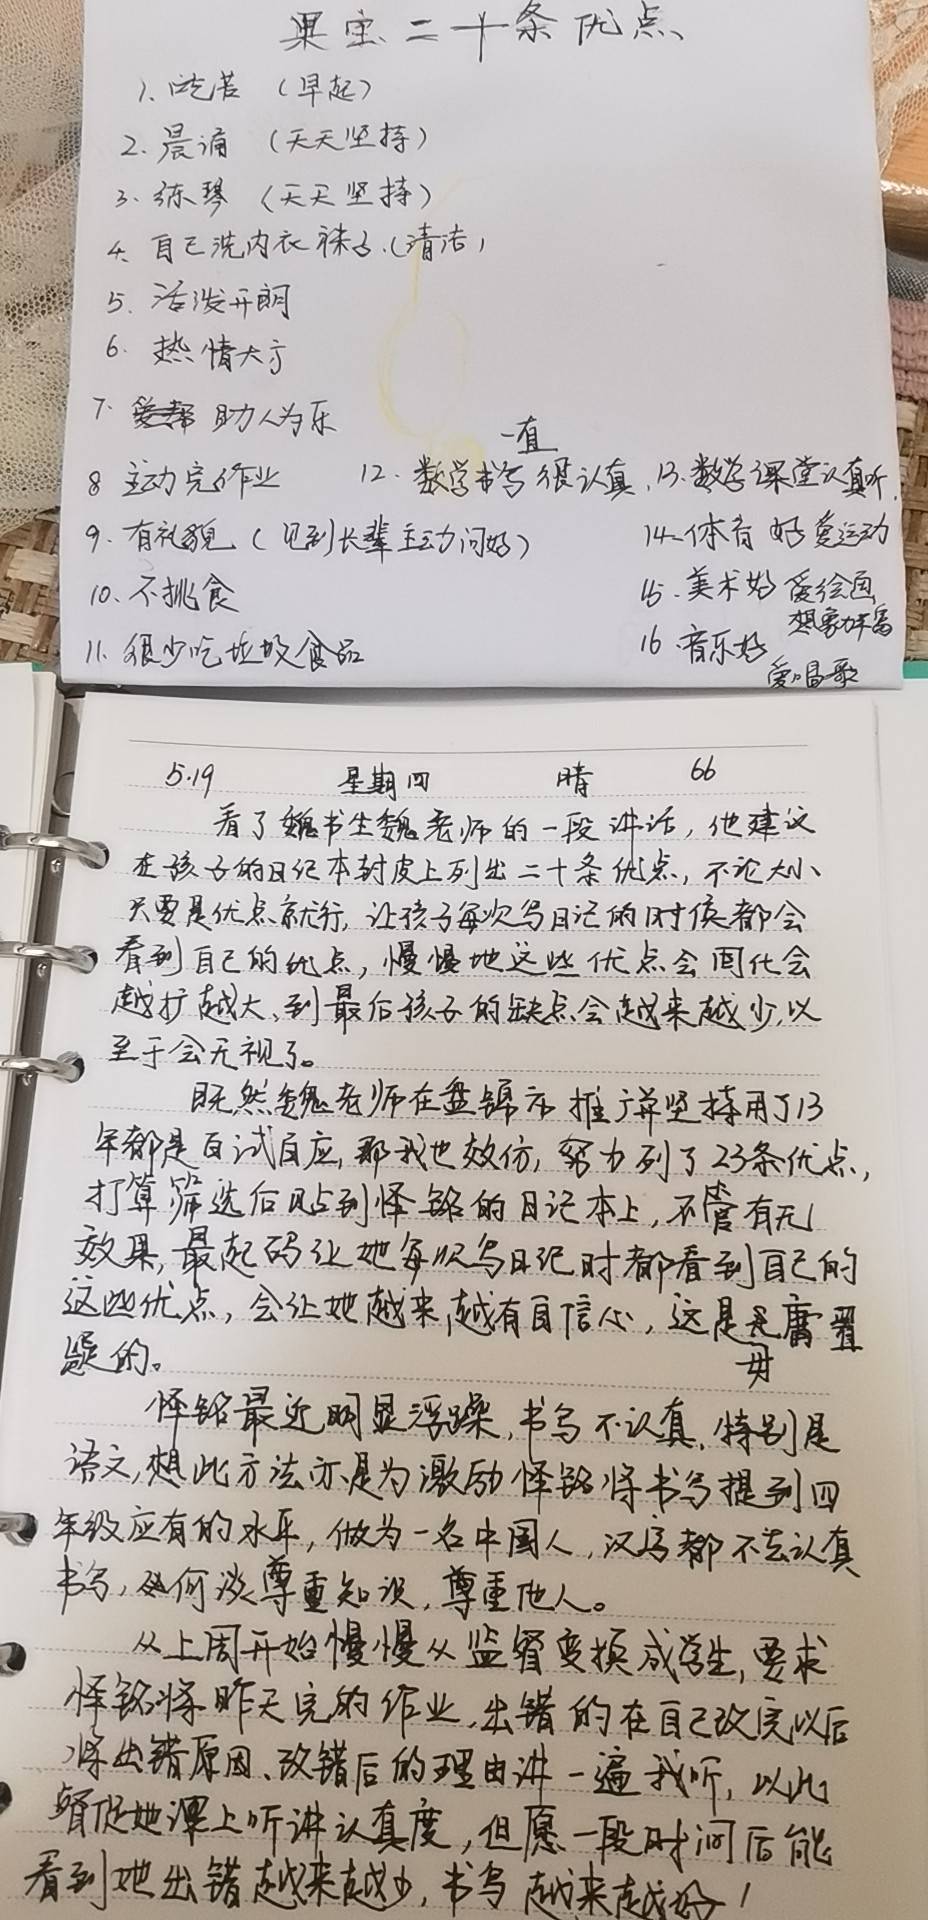 果宝二十条优点
1、吃苦（早起）
2、晨诵（天天坚持）
3、练琴（天天坚持）
4、自己洗内衣袜子（清洁）
5、活泼开朗
6、热情大方
7、助人为乐
8 主动完作业
9、有礼貌（见到长辈主动问好）
10、不挑食
11、很少吃垃圾食品
12、数学书写一直很认真，13、数学课堂认真听，
14、体育好 爱运动
15、美术好 爱绘画
想象力丰富
16、音乐好
爱唱歌
5.19 星期四 晴 66
看了魏书生魏老师的一段讲话，他建议
在孩子的日记本封皮上列出二十条优点，不论大小、
只要是优点就行，让孩子每次写日记的时候都会
看到自己的优点，慢慢地这些优点会固化会
越扩越大、到最后孩子的缺点会越来越少，以
至于会无视了。
既然魏老师在盘锦市推广并坚持用了13
年都是百试百应，那我也效仿，努力列了23条优点，
打算筛选后贴到怿铭的日记本上，不管有无
效果，最起码让她每次写日记时都看到自己的
这些优点，会让她越来越有自信心，这是毋庸置
疑的。
怿铭最近明显浮躁，书写不认真，特别是
语文，想此方法亦是为激励怿铭将书写提到四
年级应有的水平，做为一名中国人，汉字都不去认真
书写，如何谈尊重知识，尊重他人。
从上周开始慢慢从监督变换成学生，要求
怿铭将昨天完的作业，出错的在自己改完以后
将出错原因、改错后的理由讲一遍我听，以此
督促她课上听讲认真度，但愿一段时间后能
看到她出错越来越少，书写越来越好！